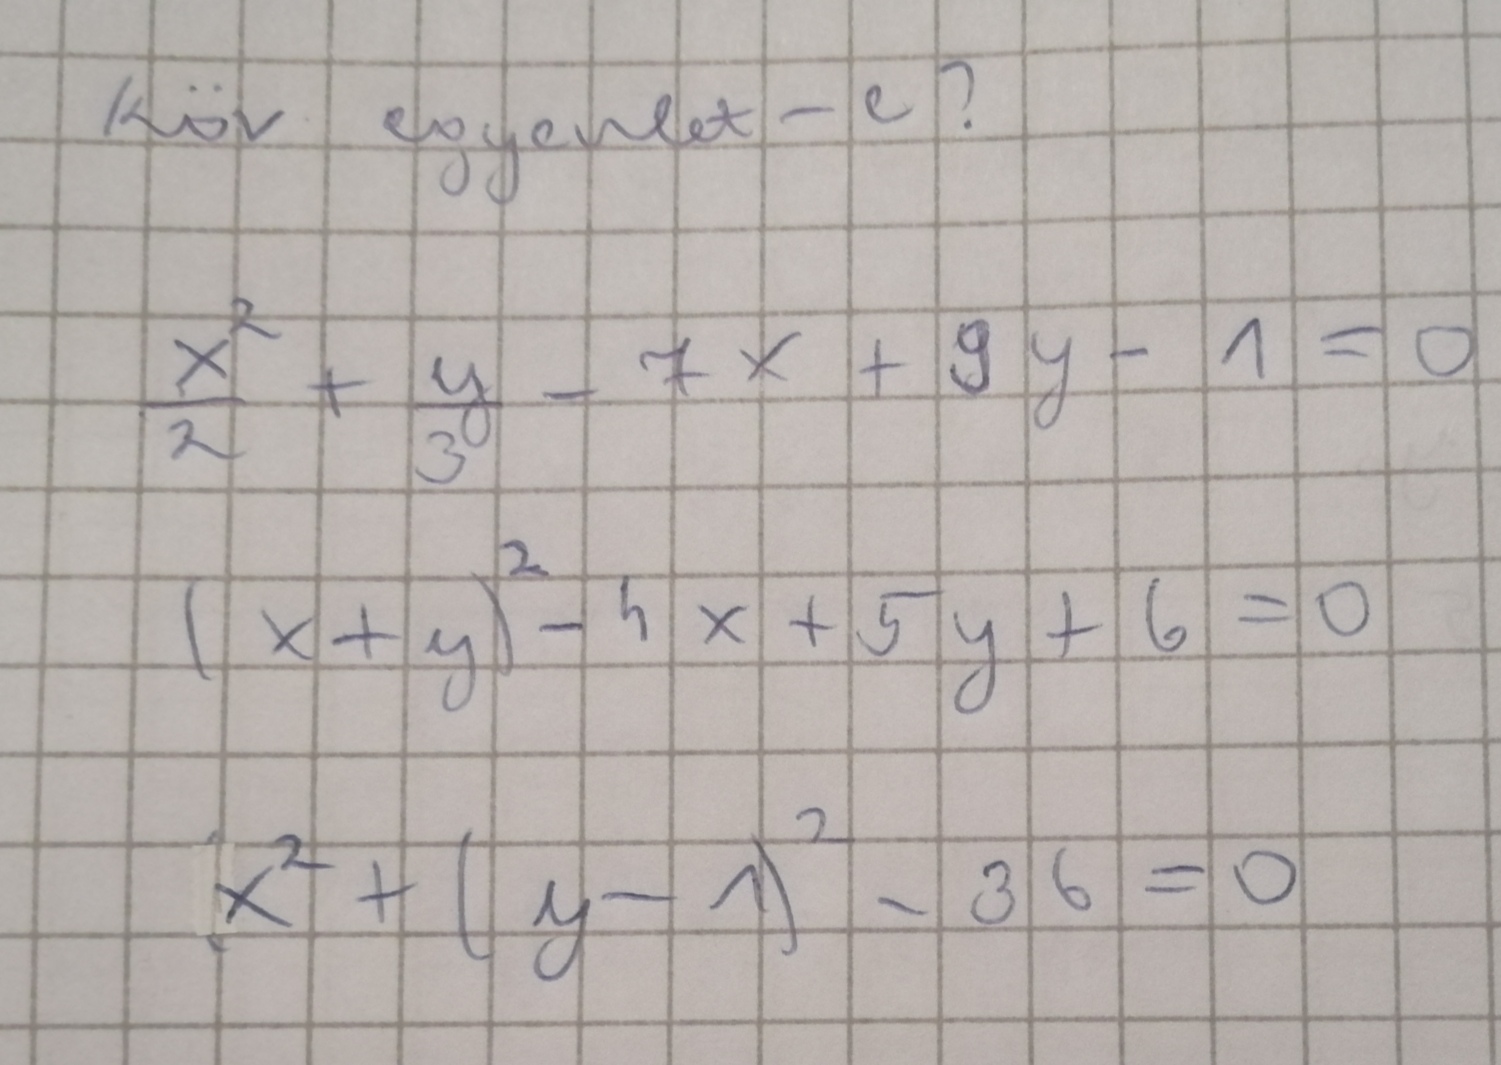 Kör egyenlet-e?
x²/2 + y/3 - 7x + 9y - 1 = 0
(x+y)² - 4x + 5y + 6 = 0
x² + (y-1)² - 36 = 0